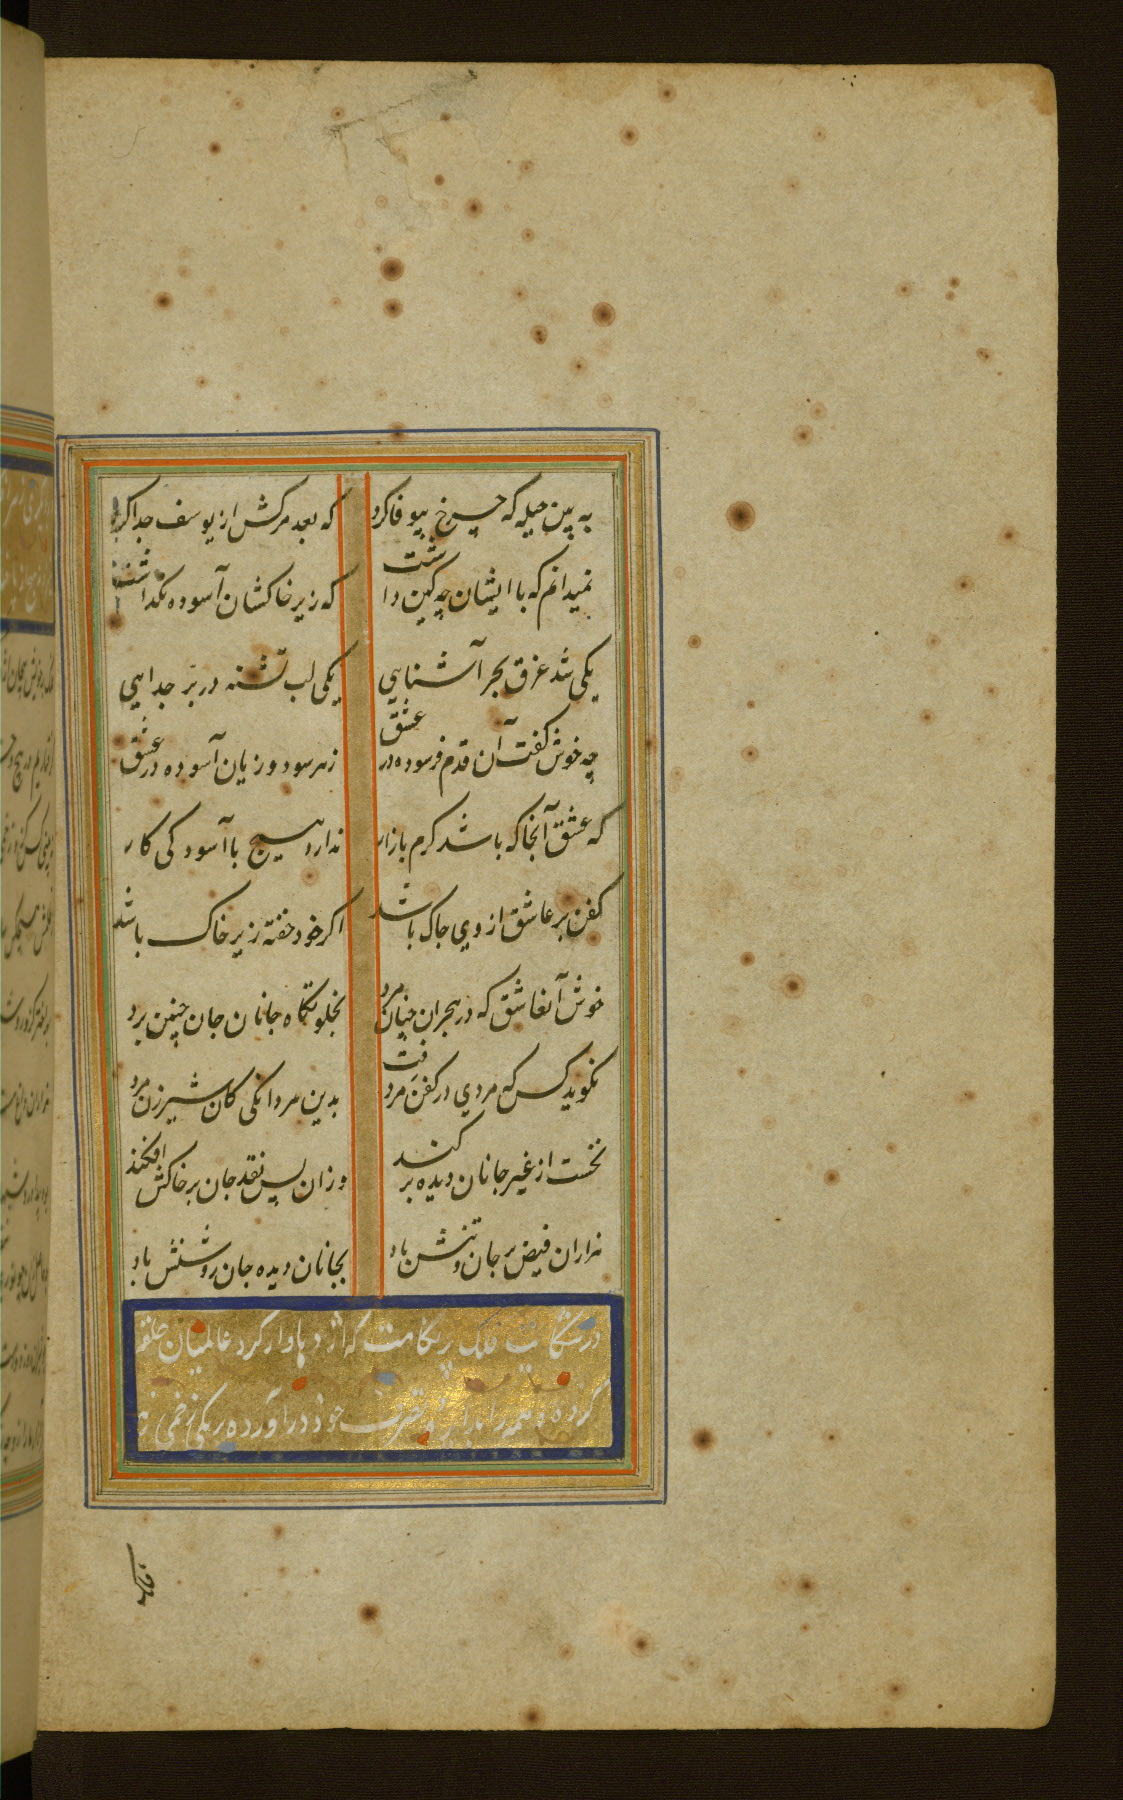 به بین حیله که چرخ بیوفا کرد که بعد مرکش از یوسف جدا کرد
نمیدانم که با ایشان چه کین داشت که زیر خاکشان آسوده نکذاشت
یکی شد غرق بحر آشنایی یکی لب تشنه در بر جدایی
چه خوش گفت آن قدم فرسوده در عشق زهر سود و زیان آسوده در عشق
که عشق آنجا که باشد کرم بازار ندارد هیچ با آسودکی کار
کفن بر عاشق از وی چاک باشد اکر خود خفته زیر خاک باشد
خوش آنعاشق که در هجران چنان مرد بخلوتکاه جانان جان چنین برد
نکوید کس که مردی در کفن رفت بدین مردانکی کان شیرزن مرد
نخست از غیر جانان دیده بر کند وزان پس نقد جان بر خاکش افکند
هزاران فیض بر جان و تنش باد بجانان دیده جان روشنش باد
در شکایت فلک که اژدهاوار کرد عالمیان حلقه
کرده و همه را در تصرف خود درآورده یکی زخمی
فلک